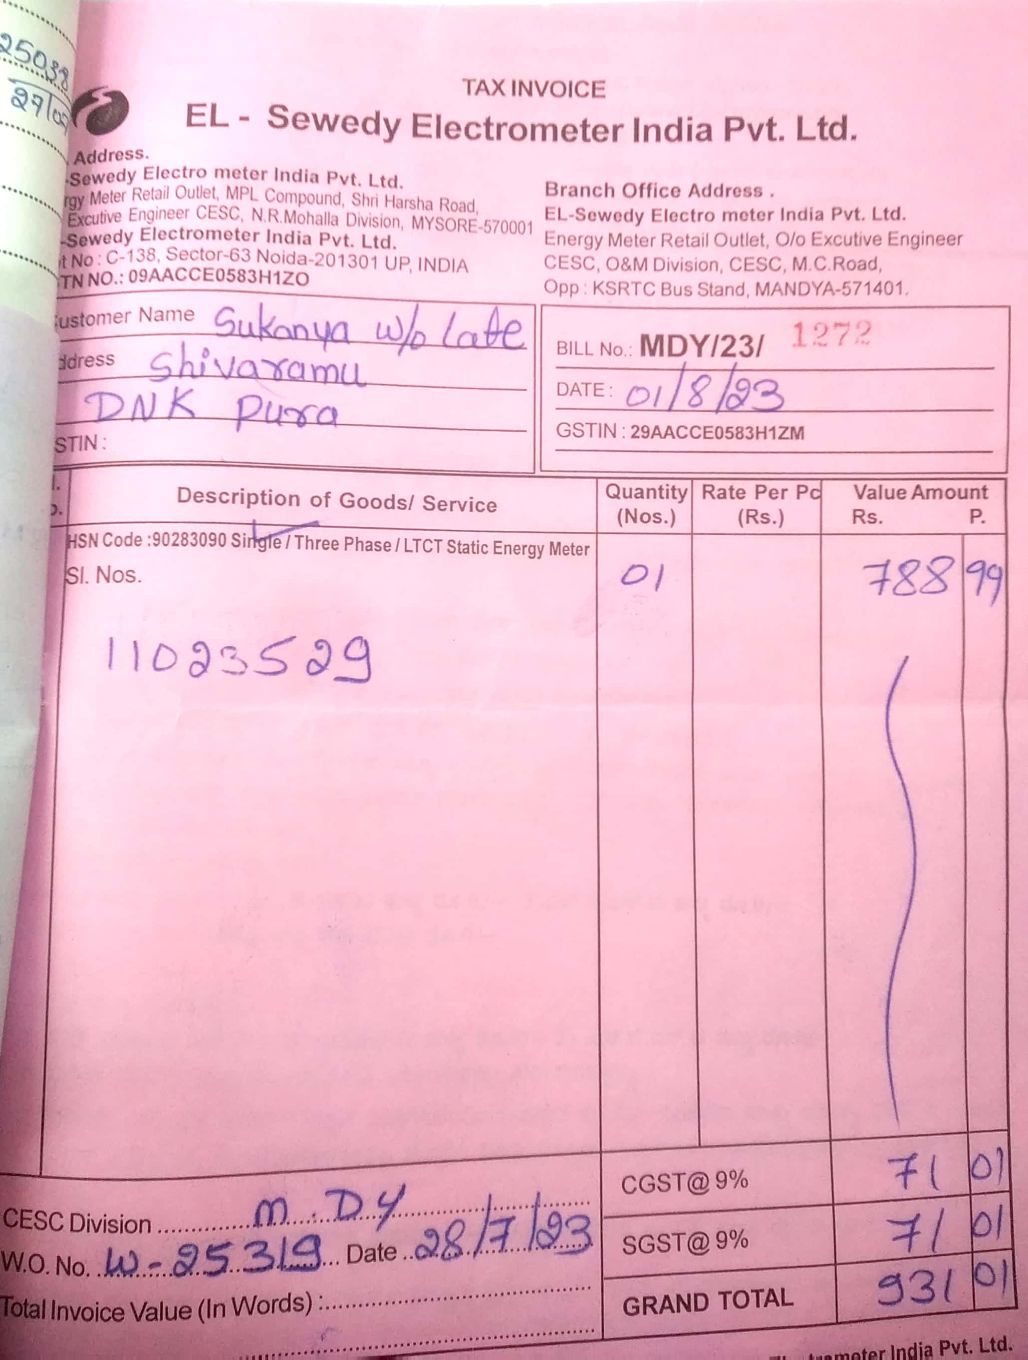 25038
27/07
TAX INVOICE
EL - Sewedy Electrometer India Pvt. Ltd.
Address.
-Sewedy Electro meter India Pvt. Ltd.
rgy Meter Retail Outlet, MPL Compound, Shri Harsha Road,
Excutive Engineer CESC, N.R.Mohalla Division, MYSORE-570001
-Sewedy Electrometer India Pvt. Ltd.
t No : C-138, Sector-63 Noida-201301 UP, INDIA
TN NO.: 09AACCE0583H1ZO
Branch Office Address .
EL-Sewedy Electro meter India Pvt. Ltd.
Energy Meter Retail Outlet, O/o Excutive Engineer
CESC, O&M Division, CESC, M.C.Road,
Opp : KSRTC Bus Stand, MANDYA-571401.
ustomer Name Sukanya w/o Late
ddress Shivaramu
DNK Pura
STIN :
BILL No.: MDY/23/ 1272
DATE : 01/8/23
GSTIN : 29AACCE0583H1ZM
Description of Goods/ Service
Quantity (Nos.)
Rate Per Pc (Rs.)
Value Amount
Rs. P.
HSN Code :90283090 Single / Three Phase / LTCT Static Energy Meter
Sl. Nos. 01 788 99
11023529
CGST@ 9% 71 01
SGST@ 9% 71 01
GRAND TOTAL 931 01
CESC Division M.DY
W.O. No. W-25319 Date 28/7/23
Total Invoice Value (In Words) :
meter India Pvt. Ltd.